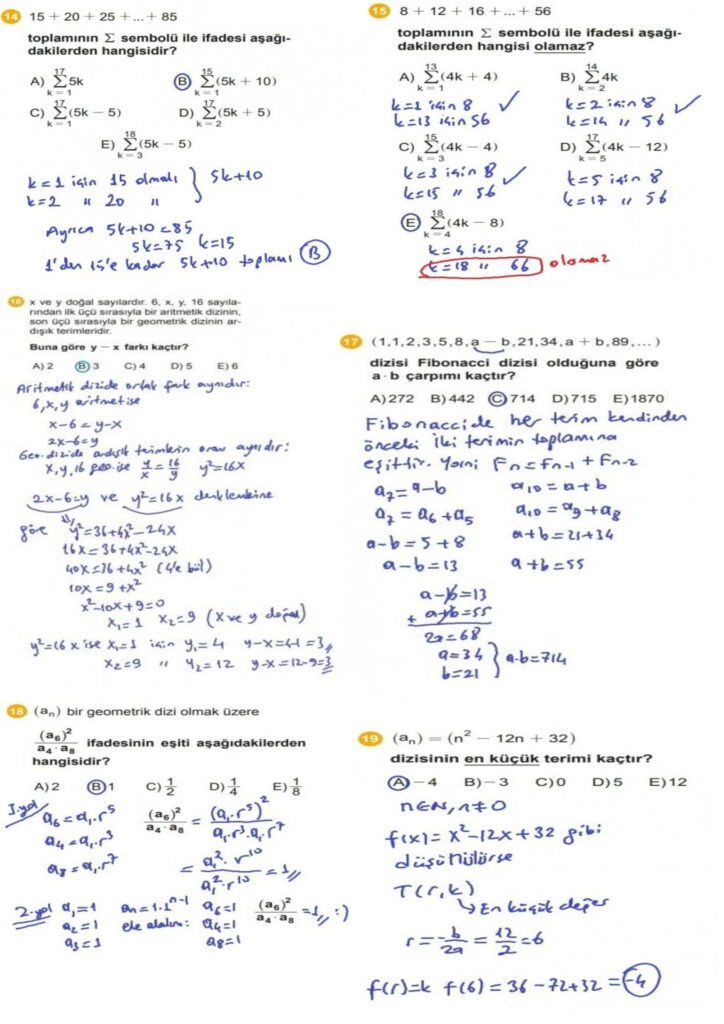 14 15 + 20 + 25 + ... + 85
toplamının Σ sembolü ile ifadesi aşağı-
dakilerden hangisidir?
A) 17 Σ k = 1 5k
B) 15 Σ k = 1 (5k + 10)
C) 17 Σ k = 1 (5k − 5)
D) 17 Σ k = 2 (5k + 5)
E) 18 Σ k = 3 (5k − 5)
k=1 için 15 olmalı } 5k+10
k=2 " 20 "
Ayrıca 5k+10=85
5k=75 k=15
1'den 15'e kadar 5k+10 toplamı B
15 8 + 12 + 16 + ... + 56
toplamının Σ sembolü ile ifadesi aşağı-
dakilerden hangisi olamaz?
A) 13 Σ k = 1 (4k + 4)
k=1 için 8 ✓
k=13 için 56
B) 14 Σ k = 2 4k
k=2 için 8 ✓
k=14 " 56
C) 15 Σ k = 3 (4k − 4)
k=3 için 8 ✓
k=15 " 56
D) 17 Σ k = 5 (4k − 12)
k=5 için 8
k=17 " 56
E) 18 Σ k = 4 (4k − 8)
k=4 için 8
k=18 " 66 olamaz
16 x ve y doğal sayılardır. 6, x, y, 16 sayıla-
rından ilk üçü sırasıyla bir aritmetik dizinin,
son üçü sırasıyla bir geometrik dizinin ar-
dışık terimleridir.
Buna göre y − x farkı kaçtır?
A) 2 B) 3 C) 4 D) 5 E) 6
Aritmetik dizide ortak fark aynıdır:
6,x,y aritmet ise
x-6=y-x
2x-6=y
Geo. dizide ardışık terimlerin oranı aynıdır:
x,y,16 geo. ise y/x = 16/y y²=16x
2x-6=y ve y²=16x denklemine
göre y²=36+4x²-24x
16x=36+4x²-24x
40x=36+4x² (4'e böl)
10x=9+x²
x²-10x+9=0
x₁=1 x₂=9 (x ve y doğal)
y²=16x ise x₁=1 için y₁=4 y-x=4-1=3
x₂=9 " y₂=12 y-x=12-9=3
17 (1,1,2,3,5,8,a − b,21,34,a + b,89,...)
dizisi Fibonacci dizisi olduğuna göre
a · b çarpımı kaçtır?
A) 272 B) 442 C) 714 D) 715 E) 1870
Fibonaccide her terim kendinden
önceki iki terimin toplamına
eşittir. Yani Fn=Fn-1+Fn-2
a₇=a-b a₁₀=a+b
a₇=a₆+a₅ a₁₀=a₉+a₈
a-b=5+8 a+b=21+34
a-b=13 a+b=55
a-b=13
+ a+b=55
2a=68
a=34
b=21 } a·b=714
18 (aₙ) bir geometrik dizi olmak üzere
(a₆)² / a₄ · a₈ ifadesinin eşiti aşağıdakilerden
hangisidir?
A) 2 B) 1 C) 1/2 D) 1/4 E) 1/8
I. yol a₆=a₁.r⁵ (a₆)² / a₄ · a₈ = (a₁.r⁵)² / a₁.r³.a₁.r⁷
a₄=a₁.r³
a₈=a₁.r⁷ = a₁².r¹⁰ / a₁².r¹⁰ = 1
2. yol a₁=1 an=1.1ⁿ⁻¹ a₆=1 (a₆)² / a₄ · a₈ = 1 :)
a₂=1 ele alalım: a₄=1
a₃=1 a₈=1
19 (aₙ) = (n² − 12n + 32)
dizisinin en küçük terimi kaçtır?
A) −4 B) −3 C) 0 D) 5 E) 12
n∈N, n≠0
f(x)=x²-12x+32 gibi
düşünülürse
T(r,k)
↳ En küçük değer
r=-b/2a=12/2=6
f(r)=k f(6)=36-72+32=-4